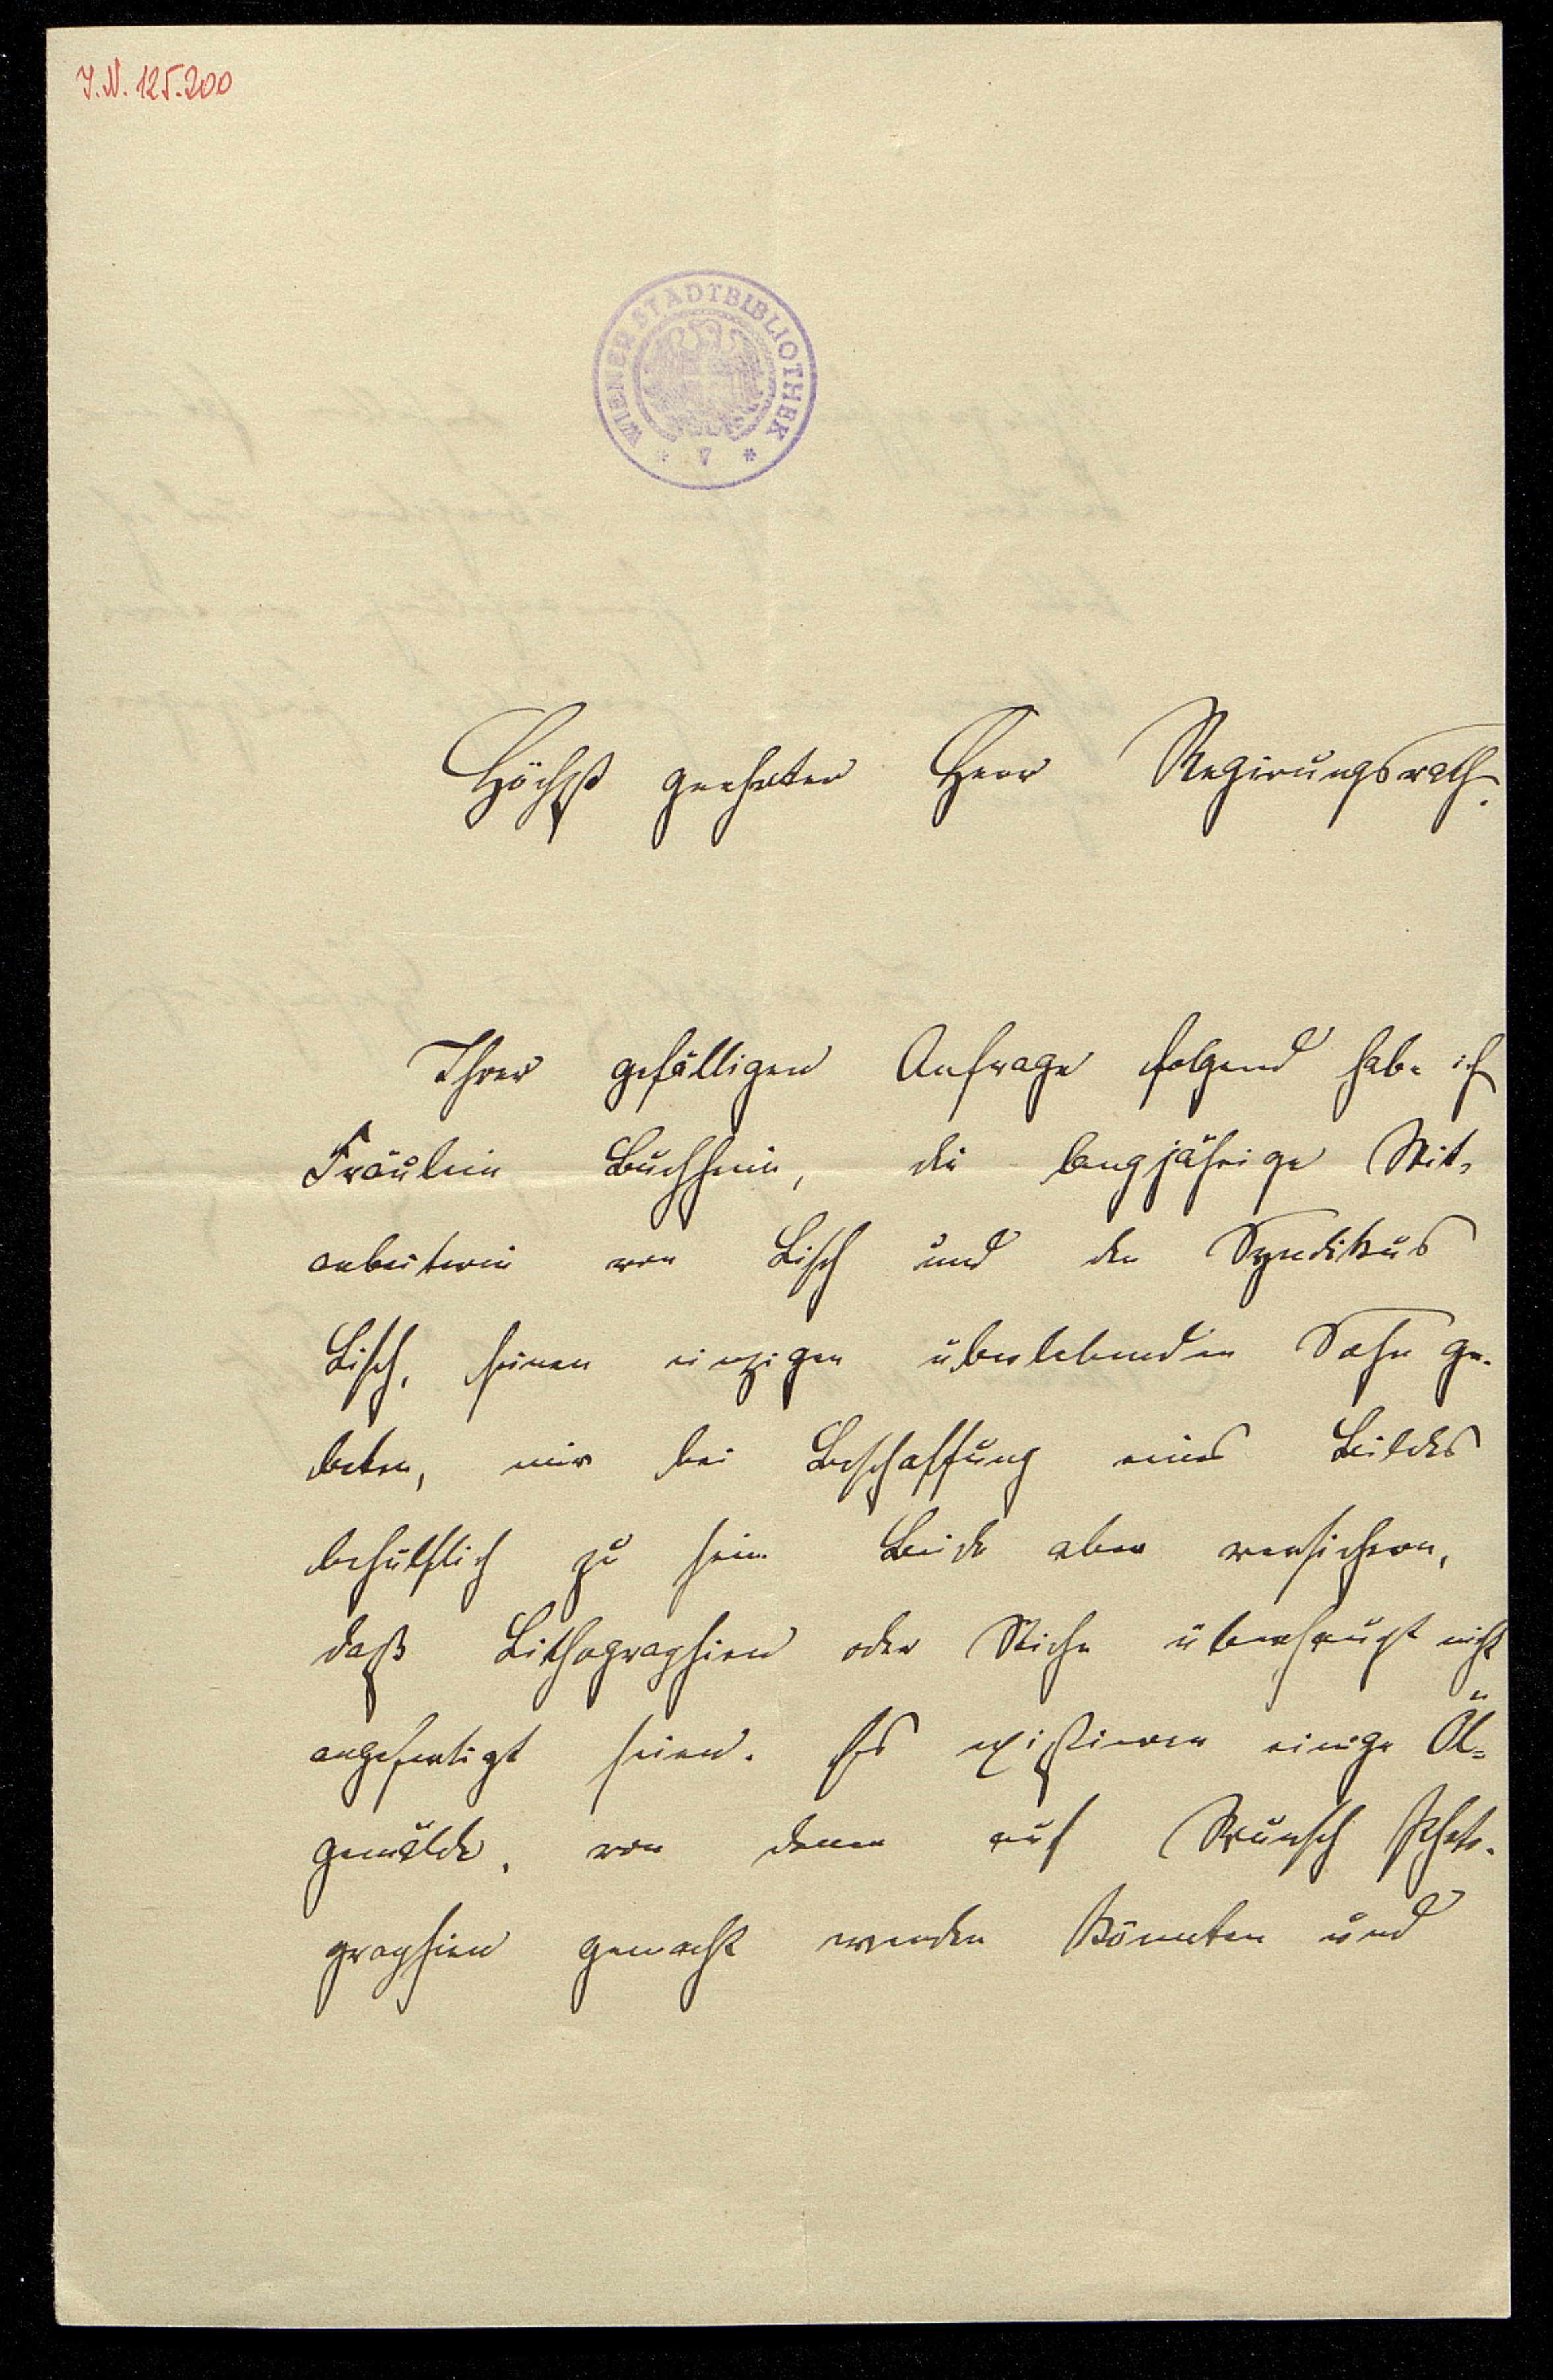 J.N. 125.200
WIENER STADTBIBLIOTHEK
Höchst geehrter Herr Regirungsrath.
Ihrer gefälligen Anfrage folgend habe ich
Fräulein Buchheim, die langjährige Mit-
arbeiterin von Lisch und den Syndikus
Lisch, seinen einzigen überlebenden Sohn ge-
beten, mir bei Beschaffung eines Bildes
behülflich zu sein. Beide aber versichern,
daß Lithographien oder Stiche überhaupt nicht
angefertigt seien. Es existieren einige Öl-
gemälde, von denen auf Wunsch Photo-
graphien gemacht werden könnten und